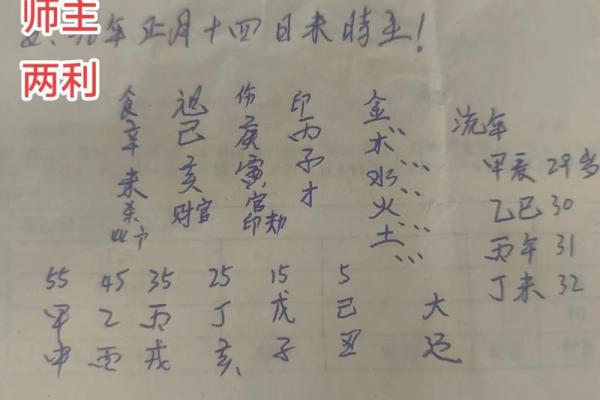 师主
两利
年正月十四日未时生!
食 祖 伤 印 金
辛 己 庚 丙 木 流年
未 亥 寅 子 水 甲辰 29岁
杀 财官 官 才 火 乙巳 30
印劫 土 丙午 31
丁未 32
55 45 35 25 15 5
甲 乙 丙 丁 戊 己 大
申 丙 戌 亥 子 丑 运